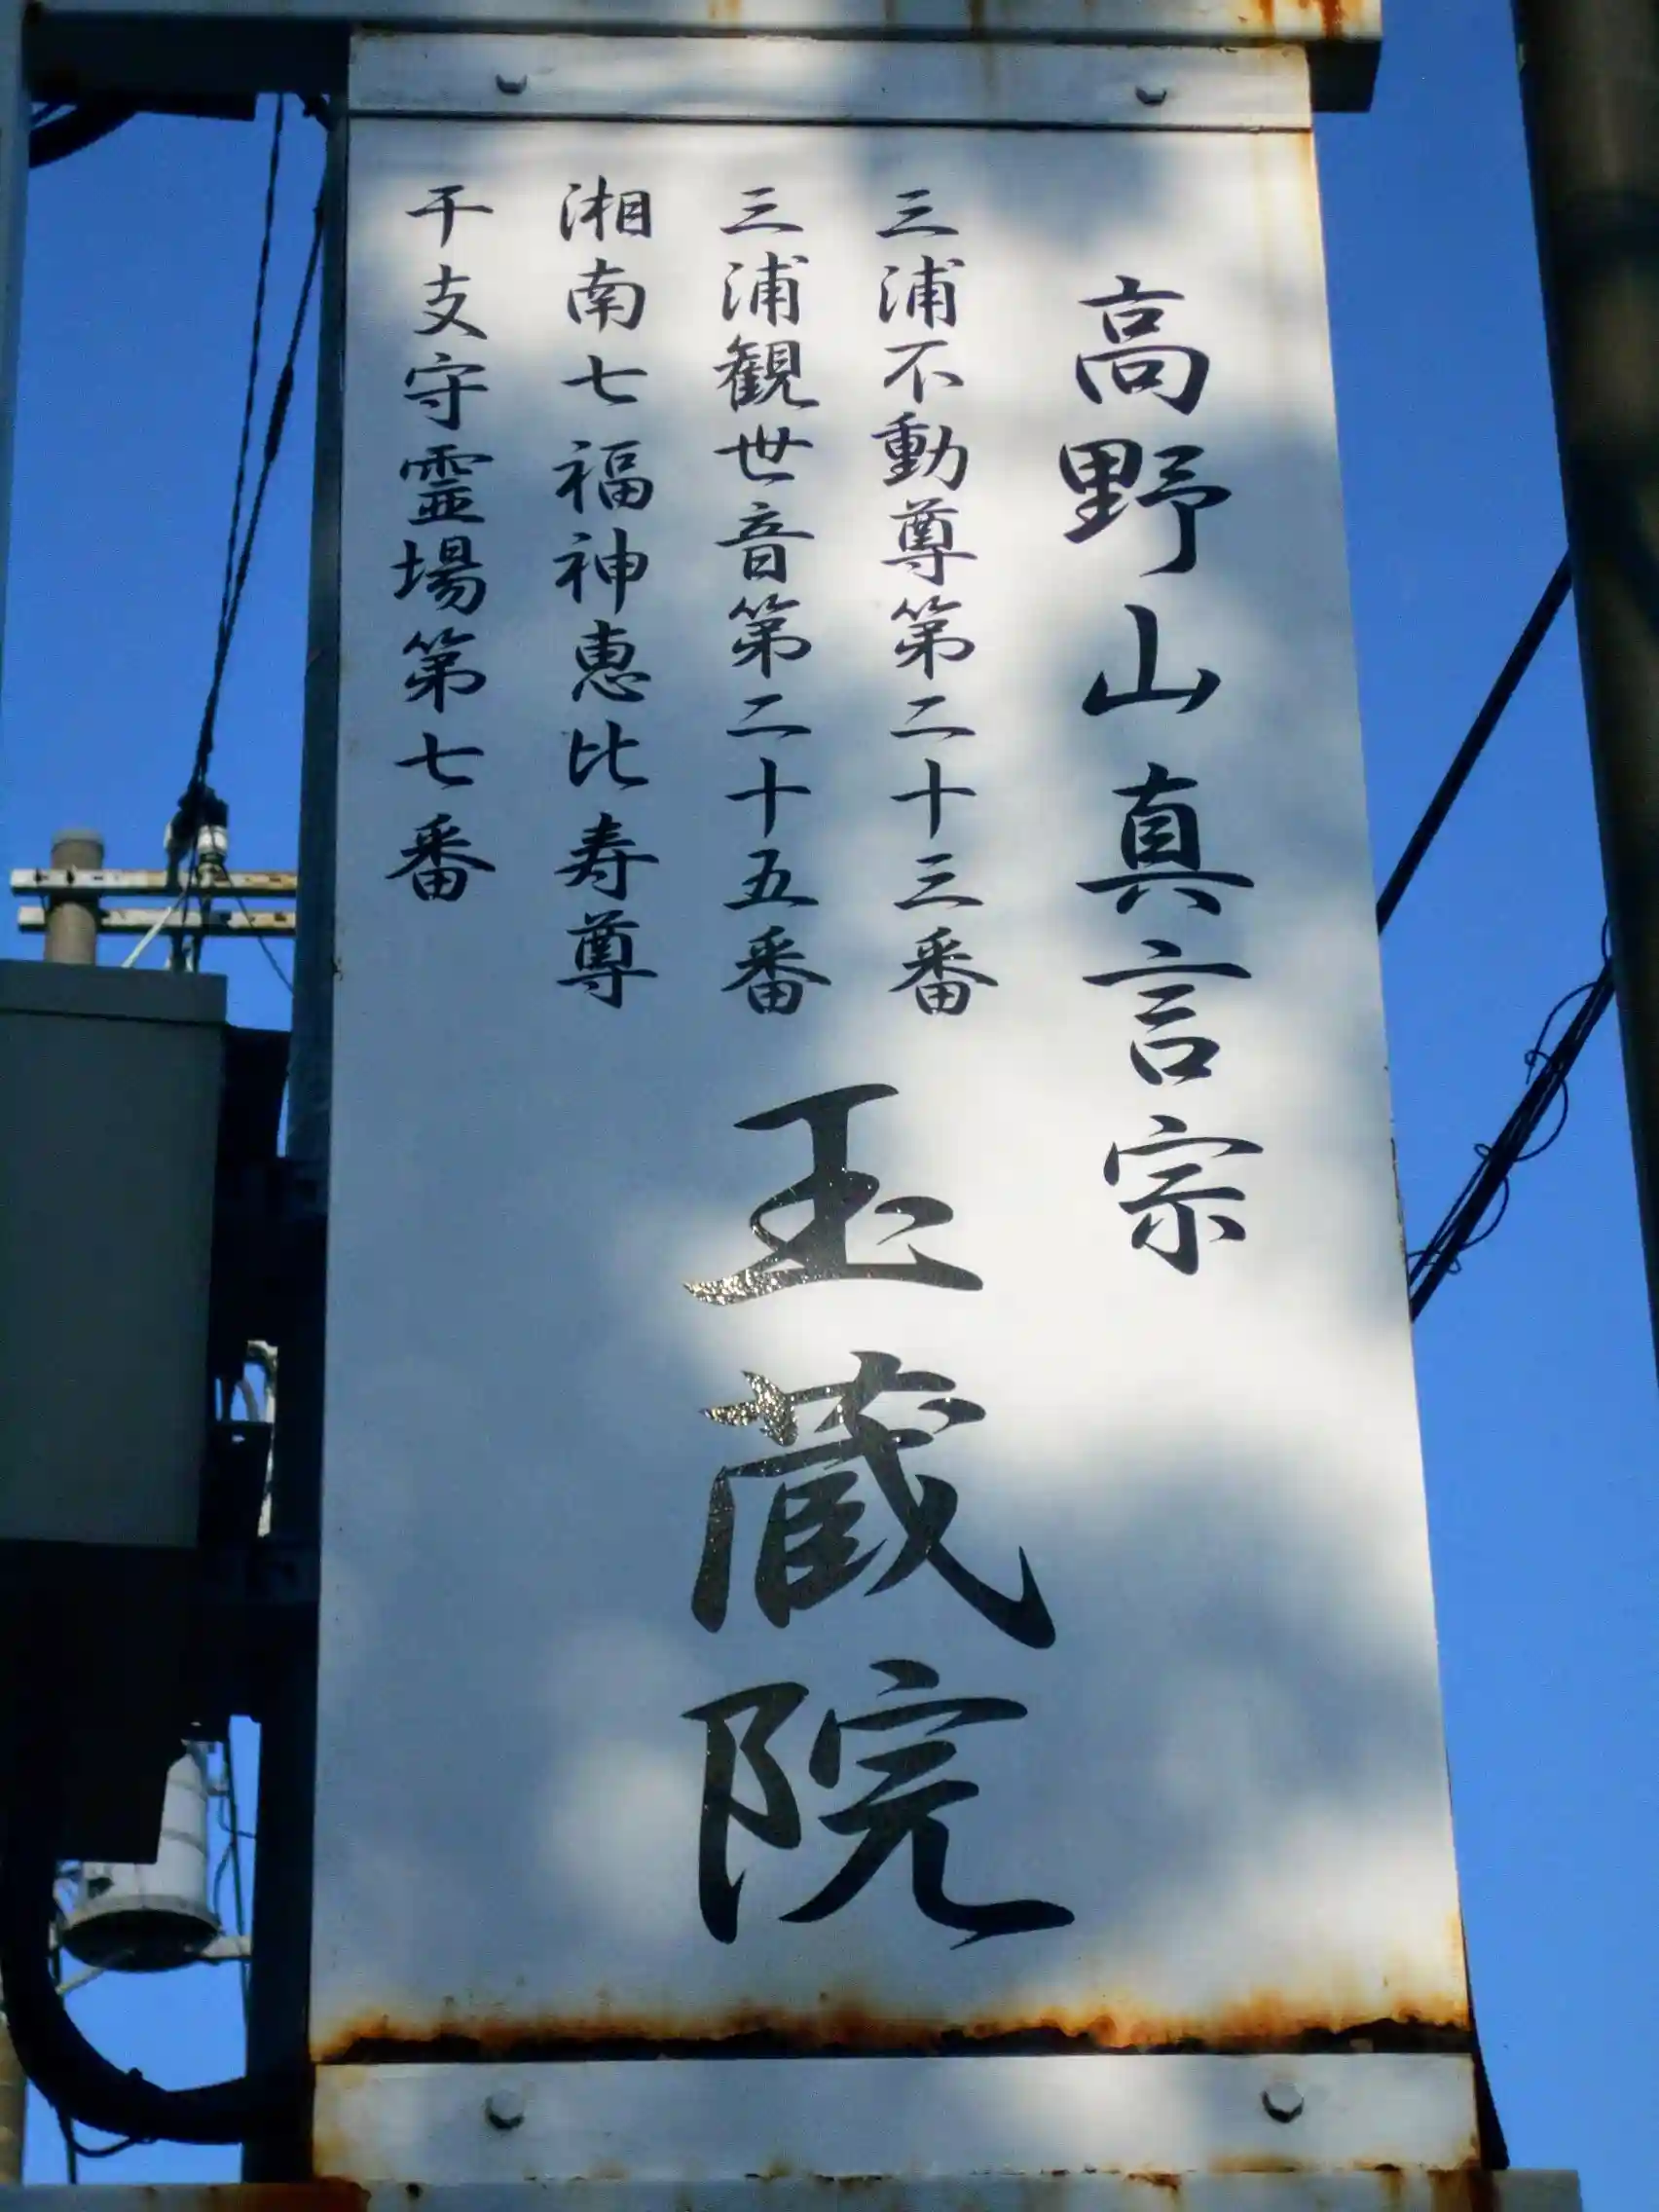 高野山真言宗
三浦不動尊第二十三番
三浦観世音第二十五番
湘南七福神恵比寿尊
干支守霊場第七番
玉蔵院